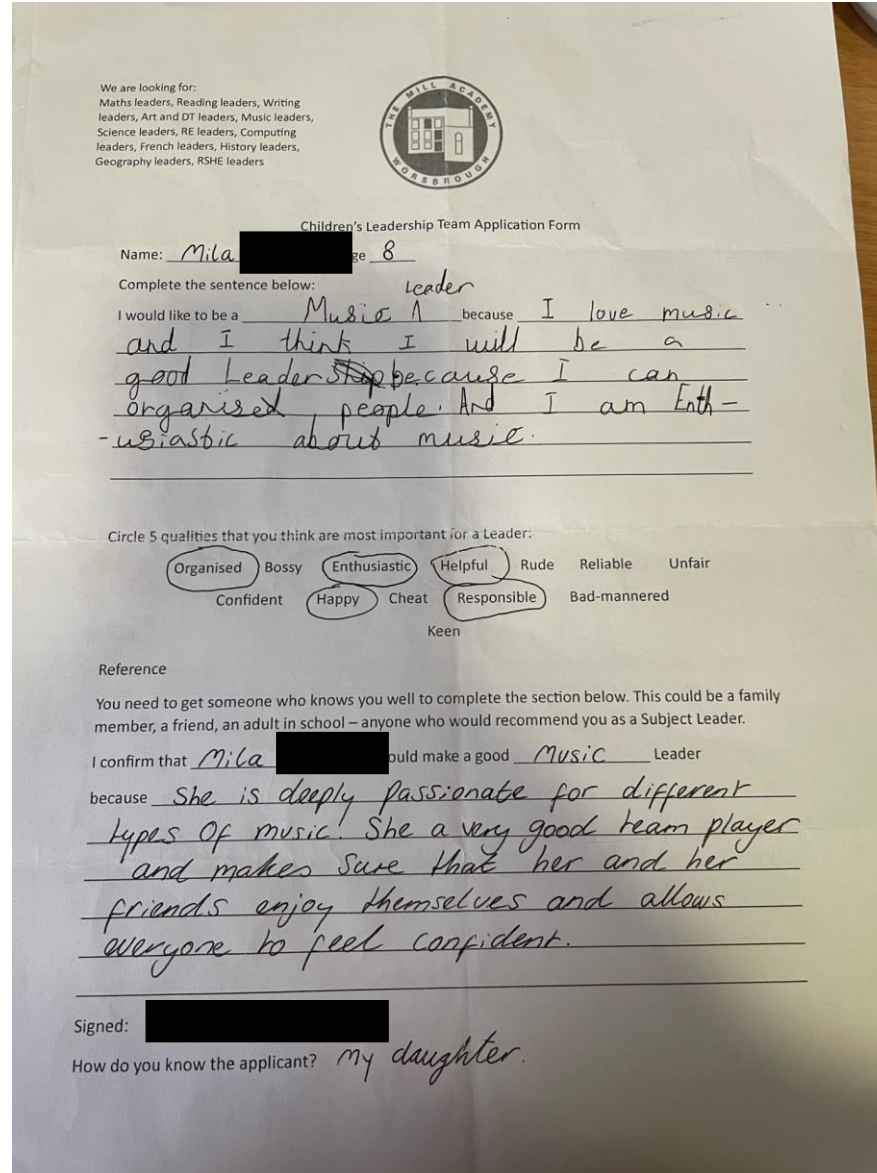 We are looking for:
Maths leaders, Reading leaders, Writing
leaders, Art and DT leaders, Music leaders,
Science leaders, RE leaders, Computing
leaders, French leaders, History leaders,
Geography leaders, RSHE leaders
THE MILL ACADEMY
WORSBROUGH
Children's Leadership Team Application Form
Name: Mila ge 8
Complete the sentence below:
Leader
I would like to be a Music because I love music
and I think I will be a
good Leadership because I can
organised people. And I am Enth-
-usiastic about music.
Circle 5 qualities that you think are most important for a Leader:
Organised Bossy Enthusiastic Helpful Rude Reliable Unfair
Confident Happy Cheat Responsible Bad-mannered
Keen
Reference
You need to get someone who knows you well to complete the section below. This could be a family
member, a friend, an adult in school – anyone who would recommend you as a Subject Leader.
I confirm that Mila ould make a good Music Leader
because She is deeply passionate for different
types of music! She a very good team player
and makes sure that her and her
friends enjoy themselves and allows
everyone to feel confident.
Signed:
How do you know the applicant? My daughter.